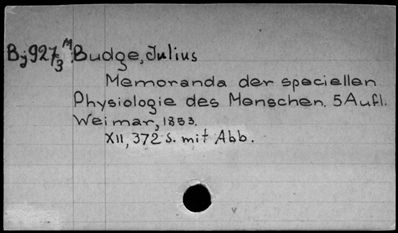 Bj927 3 M Budge, Julius
Memoranda der speciellen
Physiologie des Menschen. 5 Aufl.
Weimar, 1853.
XII, 372 S. mit Abb.